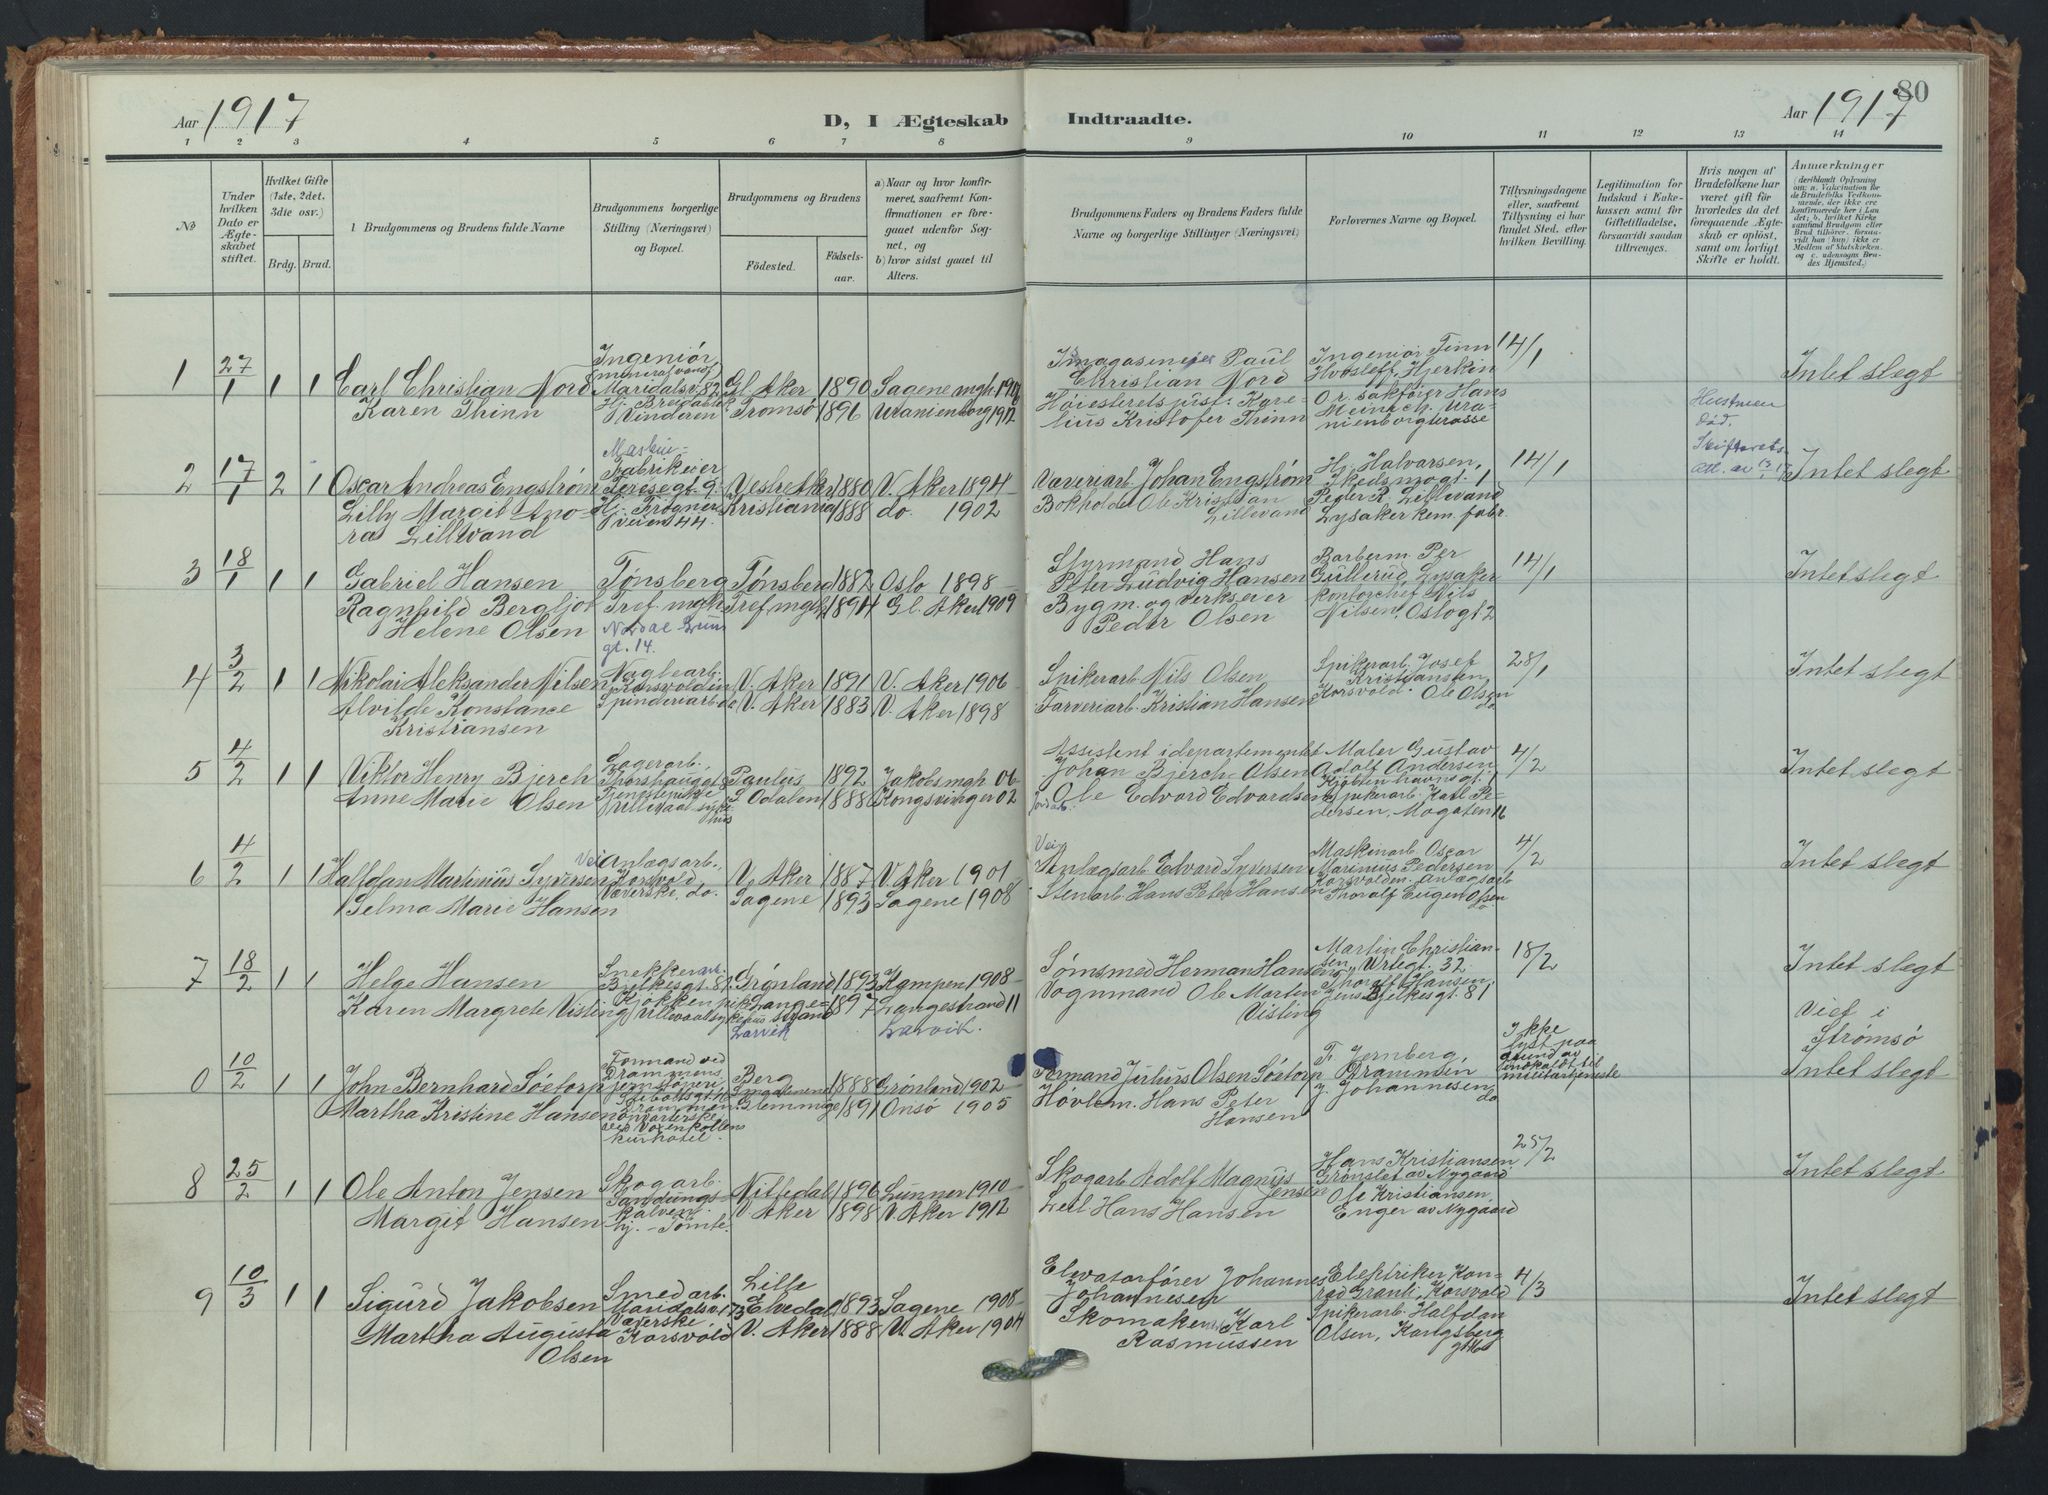 80
Aar 1917
D, I Ægteskab Indtraadte.
Aar 1917
1 2 3 4 5 6 7 8 9 10 11 12 13 14
No
Under hvilken Dato er Ægteskabet stiftet.
Hvilket Gifte (1ste, 2det, 3die osv.)
Brdg. Brud.
Brudgommens og Brudens fulde Navne
Brudgommens borgerlige Stilling (Næringsvei) og Bopel.
Brudgommens og Brudens
Födested. Födselsaar.
a) Naar og hvor konfirmeret, saafremt Konfirmationen er foregaaet udenfor Sognet, og
b) hvor sidst gaaet til Alters.
Brudgommens Faders og Brudens Faders fulde Navne og borgerlige Stillinger (Næringsvei)
Forlovernes Navne og Bopel.
Tillysningsdagene eller, saafremt Tillysning ei har fundet Sted, efter hvilken Bevilling.
Legitimation for Indskud i Enkekassen samt for Giftetilladelse, forsaavidt saadan tiltrænges.
Hvis nogen af Brudefolkene har været gift för hvorledes da det foregaaende Ægteskab er oplöst, samt om lovligt Skifte er holdt.
Anmærkninger
1 27/1 1 1 Carl Christian Nord Ingeniør Maridalsv. 82 Gl. Aker 1890 Sagene
Karen Thinn Vinderen Tromsø 1896 Uranienborg 1912
Paul Christian Nord
Kristofer Thinn
Ingeniør Finn Hvoslef, Hjerkin
O.r. sakfører Hans
14/1
Intet slegt
2 17/1 2 1 Oscar Andreas Engstrøm Maskin-Fabrikeier Vestre Aker 1880 V. Aker 1894
Lilly Margit
Lillevand Frognerveien 44. Kristiania 1888 do. 1902
Væveriarb Johan Engstrøm
Bokholder Ole Kristian Lillevand
Hj. Halvorsen,
Peder R. Lillevand
Lysaker kem. fabr.
14/1
Hustruen død.
Intet slegt
3 18/1 1 1 Gabriel Hansen Tønsberg Tønsberg 1882 Oslo 1898
Ragnhild Bergljot Tref. mgh Tref. mgh 1894 Gl. Aker 1909
Helene Olsen
gt. 14.
Styrmand Hans
Peter Ludvig Hansen
Bygm. og verkseier
Peder Olsen
Barberm. Per
Gullerud, Lysaker
Kontorchef Nils
Nilsen, Oslogt 2
14/1
Intet slegt
4 3/2 1 1 Nikolai Aleksander Nilsen Naglearb. V. Aker 1891 V. Aker 1906
Alvilde Konstance Spinderiarb do V. Aker 1883 V. Aker 1898
Kristiansen
Spikerarb. Nils Olsen
Farveriarb. Kristian Hansen
Spikerarb. Josef
Kristiansen,
Korsvold. Ole Olsen do
28/1
Intet slegt
5 4/2 1 1 Viktor Henry Bjerch Lagerarb. Paulus 1892 Jakobs mgh. 06
Anne Marie Olsen Tjenestepike S. Odalen 1888 Kongsvinger 02
Assistent i departementet
Johan Bjerch Olsen
Ole Edvard Edvardsen
Maler Gustav
Adolf Andersen
Kjøbenhavnsgt.
Spikerarb. Karl Pedersen, Mogaten 16
4/2
Intet slegt
6 4/2 1 1 Halfdan Martinius Syversen Vei Anlægsarb. Korsvold V. Aker 1887 V. Aker 1901
Selma Marie Hansen Væverske, do. Sagene 1893 Sagene 1908
Vei Anlægsarb Edvard Syversen
Stenarb. Hans Peter Hansen
Maskinarb. Oscar
Marinius Pedersen
Korsvolden. anlægsarb
Thoralf Eugen Olsen do
4/2
Intet slegt
7 18/2 1 1 Helge Hansen Snekkerarb. Grønland 1893 Kampen 1908
Karen Margrete Visting Kjøkkenpik Langestrand 1897 Langestrand 11
Larvik Larvik.
Sømsmed Herman Hansen
Vognmand Ole Morten
Visting
Martin Christiansen, Urtegt. 32
Thoralf Hansen,
81
18/2
Intet slegt
Viet i
Strømsø
0 10/2 1 1 John Bernhard Søetorp Formand ved Drammens Berg 1888 Grønland 1902
Martha Kristine Hansen Glemminge 1891 Onsø 1905
kurhotel.
Formand Julius Olsen Søetorp
Høvlem. Hans Peter
Hansen
F. Jernberg,
Drammen
J. Johannesen do
Ikke lyst paa grund av indkaldt til militærtjeneste
Intet slegt
8 25/2 1 1 Ole Anton Jensen Skogarb. Nittedal 1896 Lunner 1910
Margit Hansen V. Aker 1898 V. Aker 1912
Skogarb Adolf Magnus Jensen
Leil. Hans Hansen
Hans Kristiansen
Grønslet av Nygaard
Ole Kristiansen,
Enger av Nygaard
25/2
Intet slegt
9 10/3 1 1 Sigurd Jakobsen Smedarb. Lille Elvedal 1893 Sagene 1908
Martha Augusta Væverske Korsvold V. Aker 1888 V. Aker 1904
Olsen
Elevatorfører Johannes
Johannesen
Skomaker Karl
Rasmussen
Elektriker Konrad Granli, Korsvold
Spikerarb. Halfdan
Olsen, Kongsberg
4/3
Intet slegt